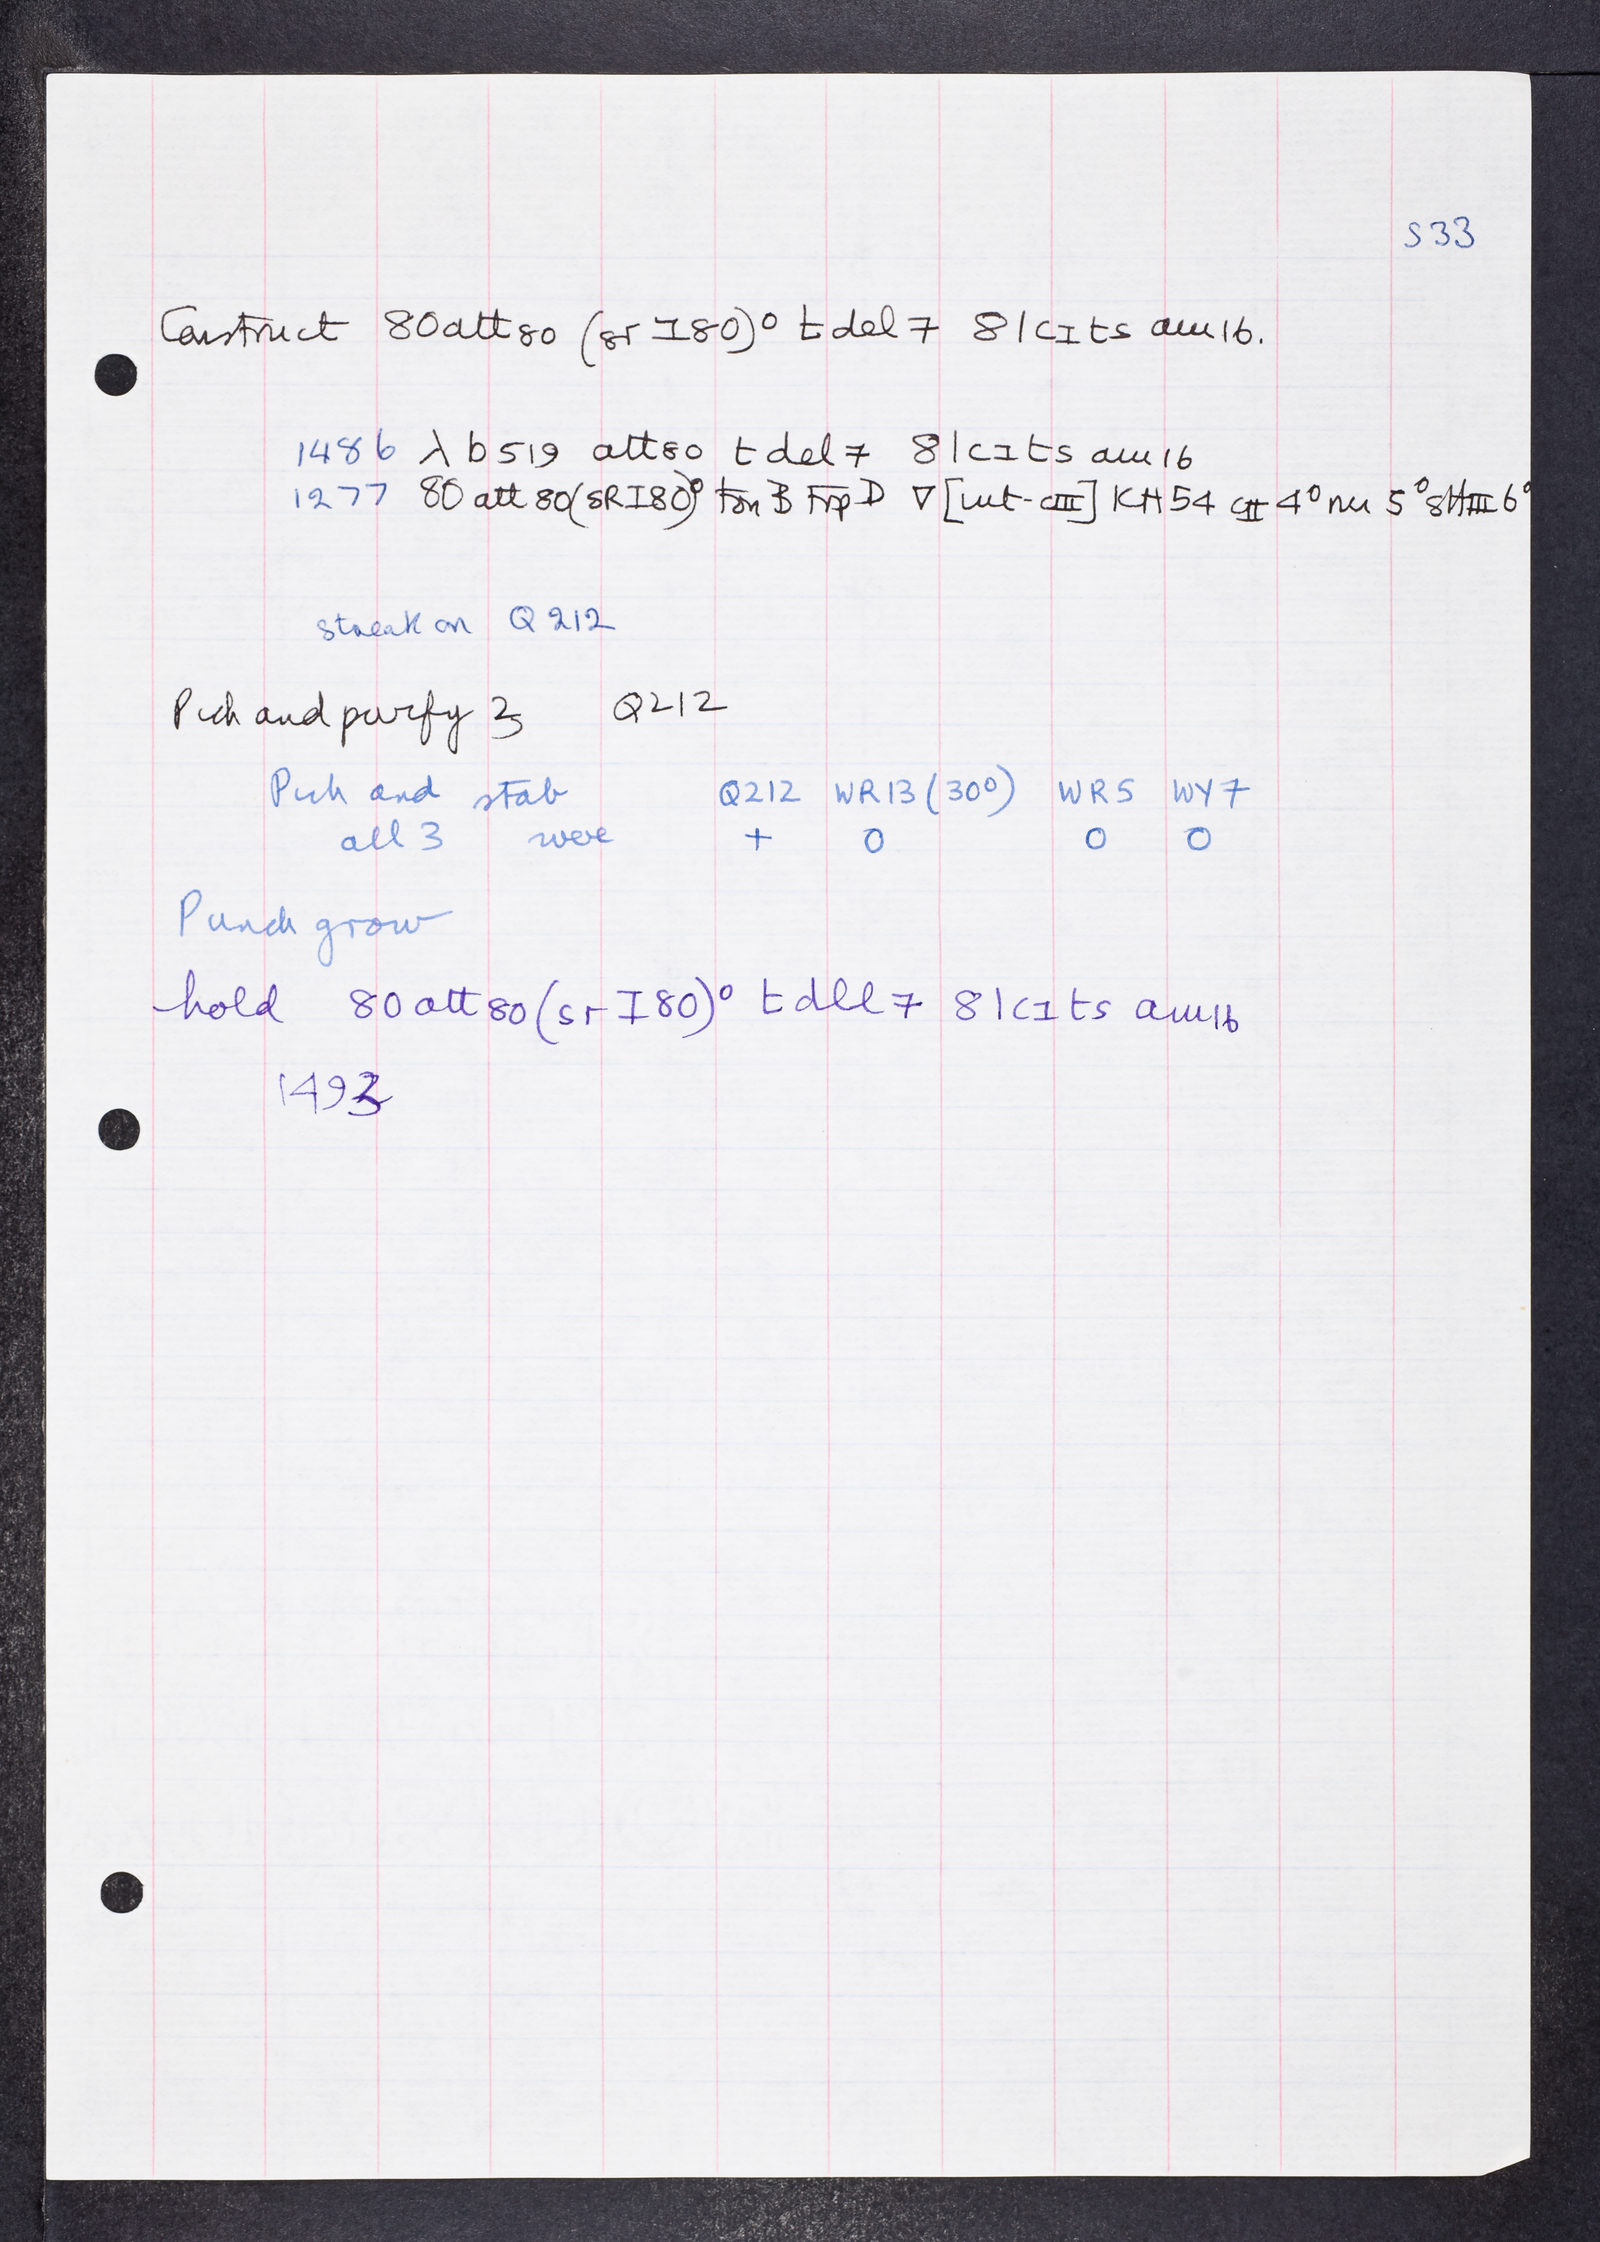 S33
Construct 80 att80 (sr I80)° t del 7 81 cI ts am16.
1486 λ b519 att80 t del 7 81 cI ts am16
1277 80 att 80 (sRI80)° Ton B Trp D ∇ [int-cIII] KH54 cII 4° nin 5° sHIII 6°
streak on Q212
Pick and purify 3 Q212
Pick and stab Q212 WR13 (30°) WR5 WY7
all 3 were + 0 0 0
Punch grow
hold 80 att80 (sr I80)° t del 7 81 cI ts am16
1493